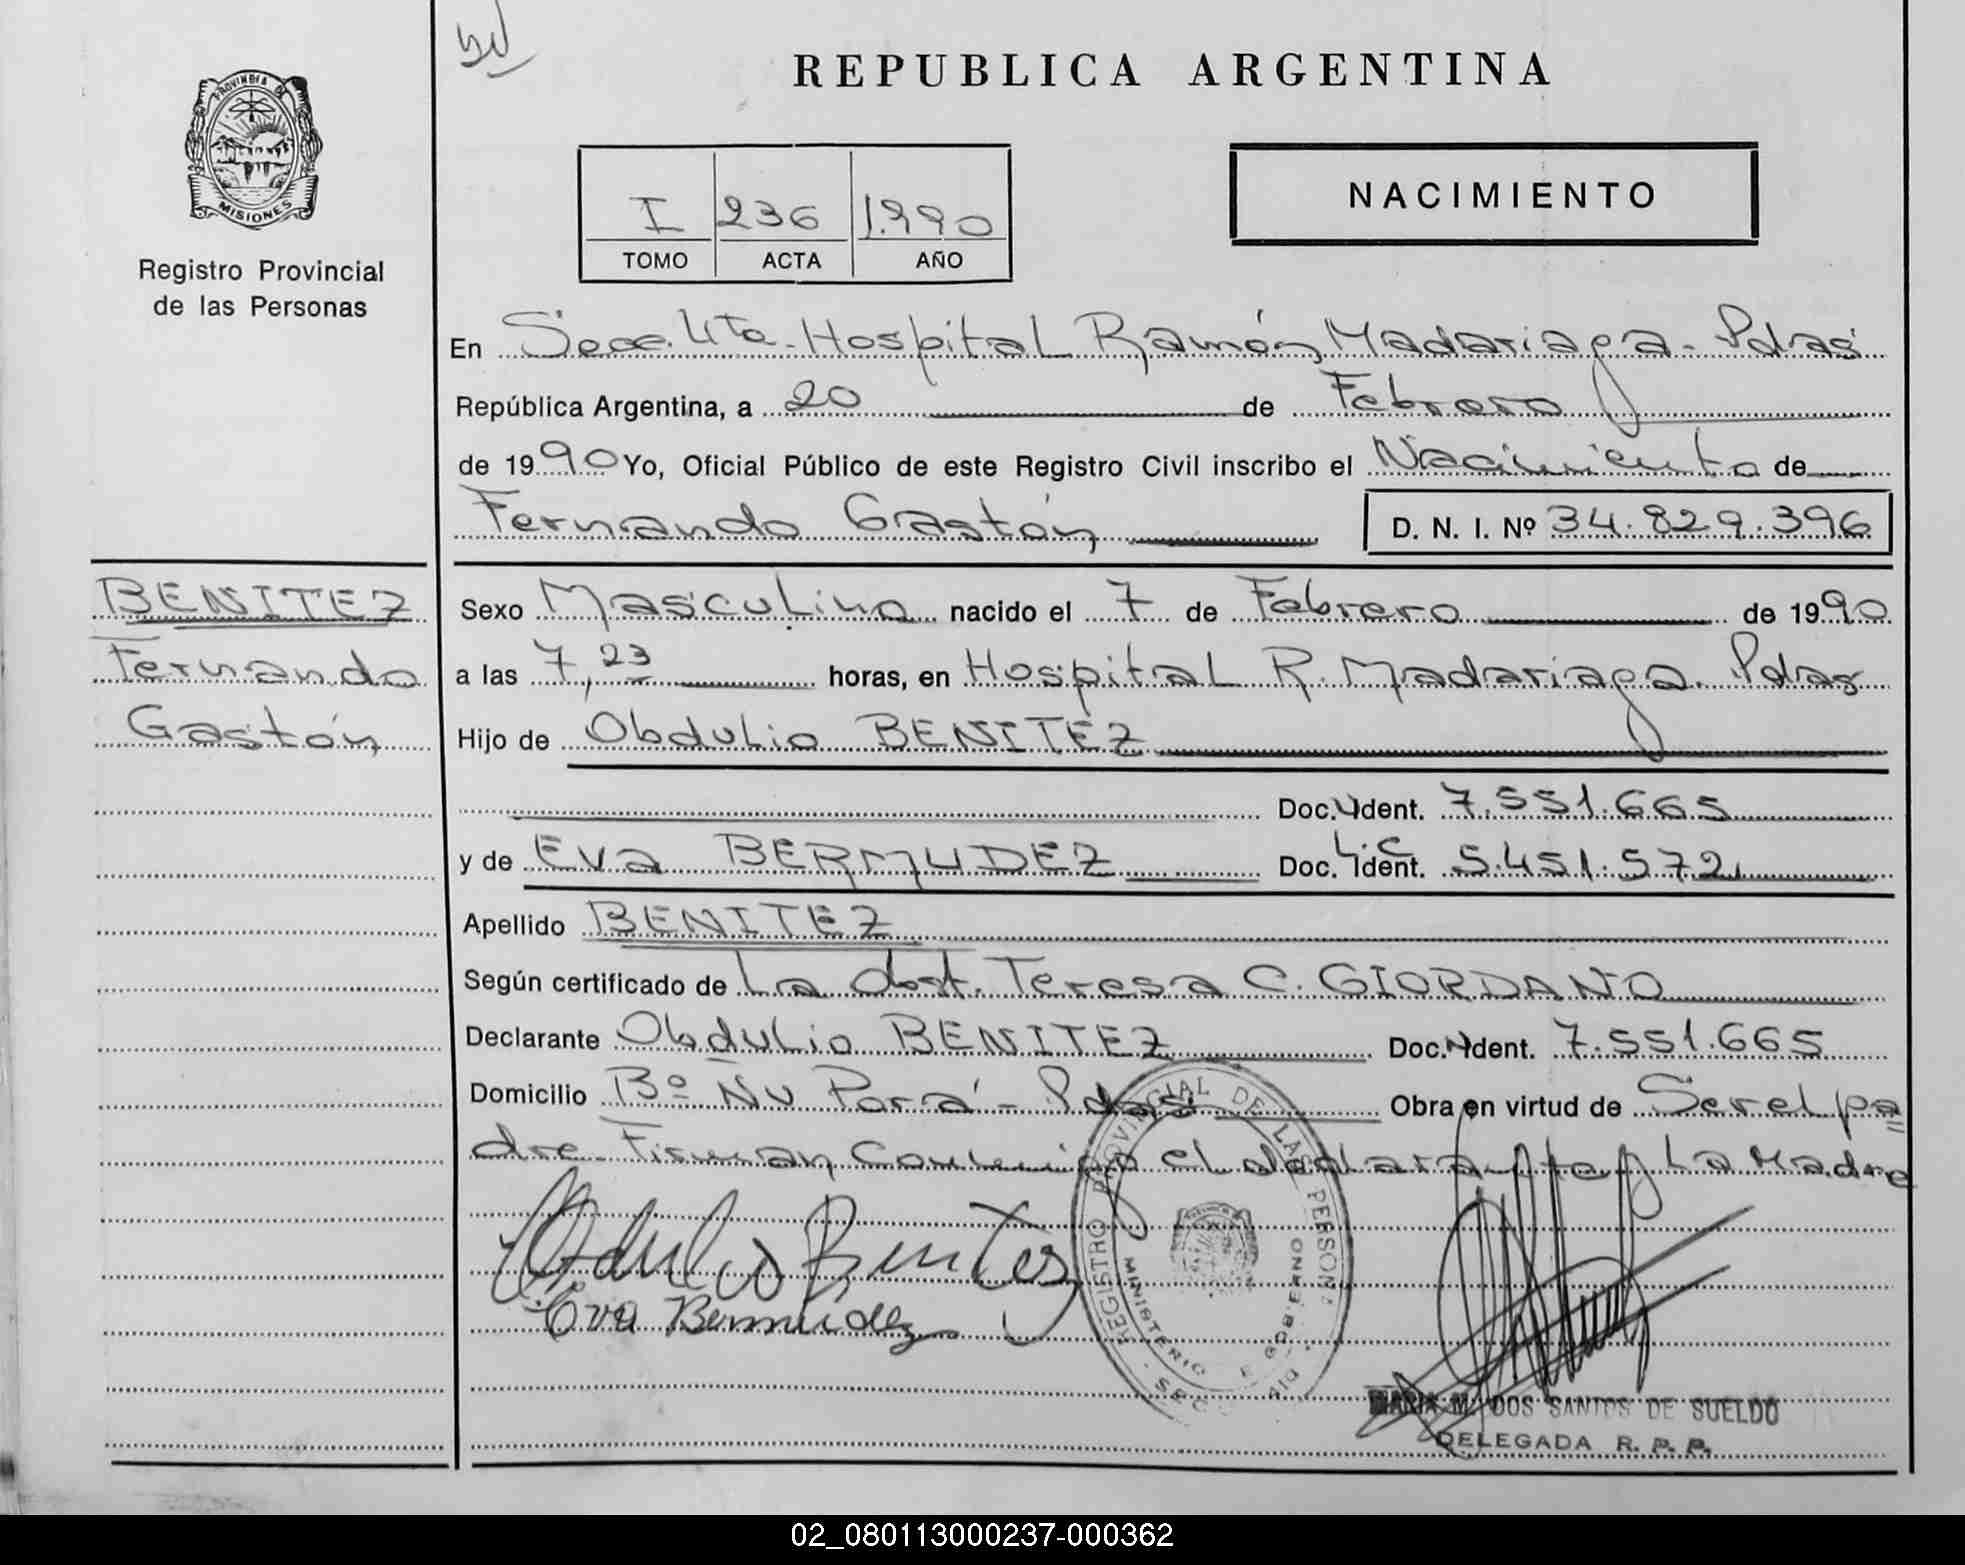 REPUBLICA ARGENTINA
PROVINCIA DE
MISIONES
Registro Provincial
de las Personas
I 236 1.990
TOMO ACTA AÑO
NACIMIENTO
En Secc. 4ta. Hospital Ramón Madariaga - Pdas
República Argentina, a 20 de Febrero
de 1990 Yo, Oficial Público de este Registro Civil inscribo el Nacimiento de
Fernando Gastón D. N. I. Nº 34.829.396
BENITEZ
Fernando
Gastón
Sexo Masculino nacido el 7 de Febrero de 1990
a las 7,23 horas, en Hospital R. Madariaga. Pdas
Hijo de Obdulio BENITEZ
Doc. Ident. 7.551.665
y de Eva BERMUDEZ Doc. L.C Ident. 5.451.572
Apellido BENITEZ
Según certificado de La obst. Teresa C. GIORDANO
Declarante Obdulio BENITEZ Doc. Ident. 7.551.665
Domicilio Bº Ñu Porá - Pdas Obra en virtud de Ser el pa
dre. Firman conmigo el declarante y La Madre
Obdulio Benites
Eva Bermudez
REGISTRO PROVINCIAL DE LAS PERSONAS
MINISTERIO DE GOBIERNO
MARIA M. DOS SANTOS DE SUELDO
DELEGADA R. P. P.
02_080113000237-000362